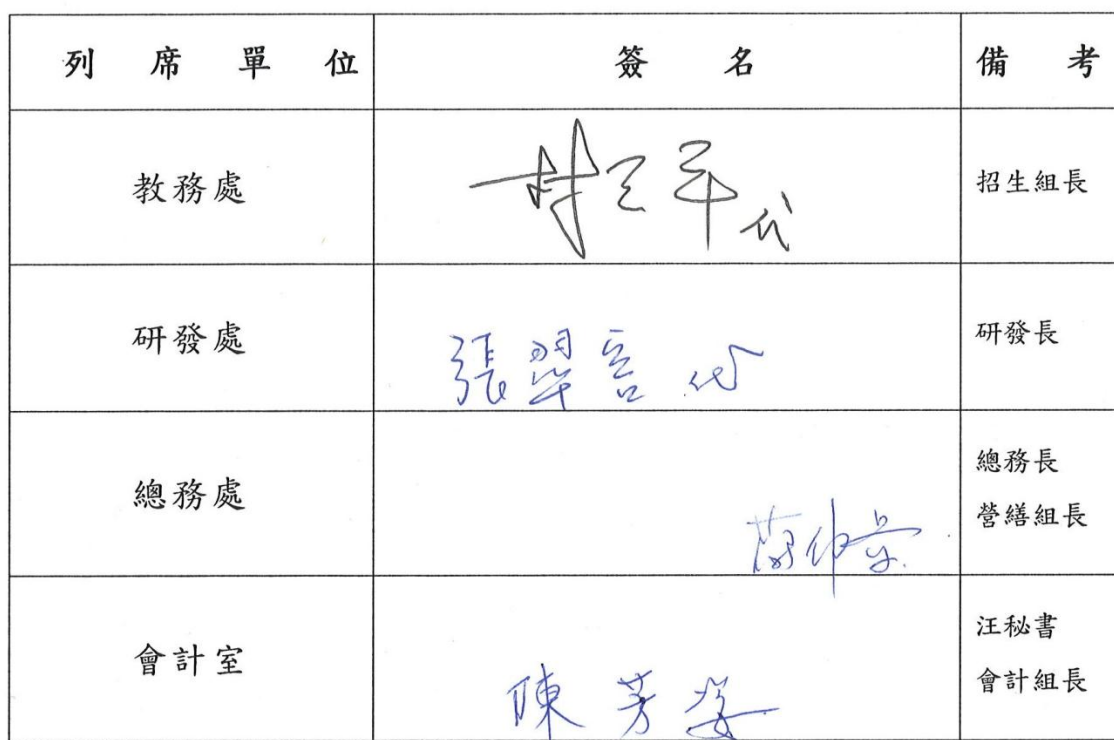 列席單位 簽名 備考
教務處 代 招生組長
研發處 張翠言 代 研發長
總務處 總務長
營繕組長
會計室 陳芳姿 汪秘書
會計組長